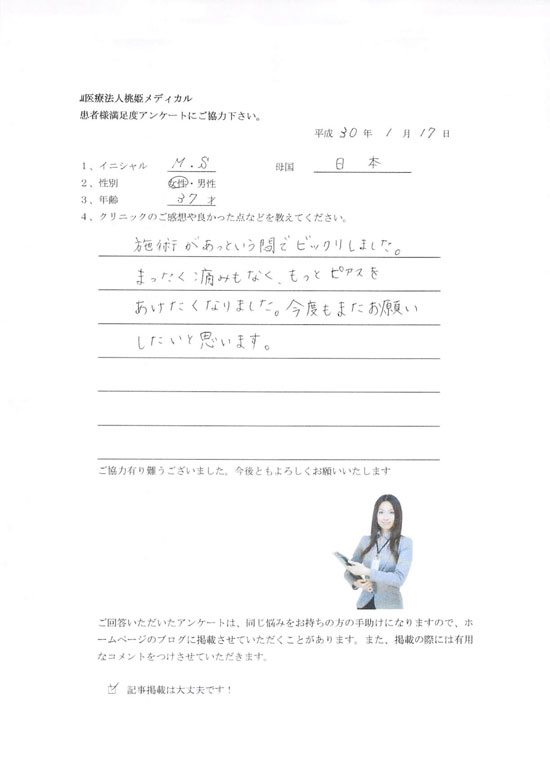 医療法人桃姫メディカル
患者様満足度アンケートにご協力下さい。
平成 30 年 1 月 17 日
1、イニシャル M.S 母国 日本
2、性別 女性・男性
3、年齢 37才
4、クリニックのご感想や良かった点などを教えてください。
施術があっという間でビックリしました。
まったく痛みもなく、もっとピアスを
あけたくなりました。今度もまたお願い
したいと思います。
ご協力有り難うございました。今後ともよろしくお願いいたします
ご回答いただいたアンケートは、同じ悩みをお持ちの方の手助けになりますので、ホ
ームページのブログに掲載させていただくことがあります。また、掲載の際には有用
なコメントをつけさせていただきます。
記事掲載は大丈夫です！